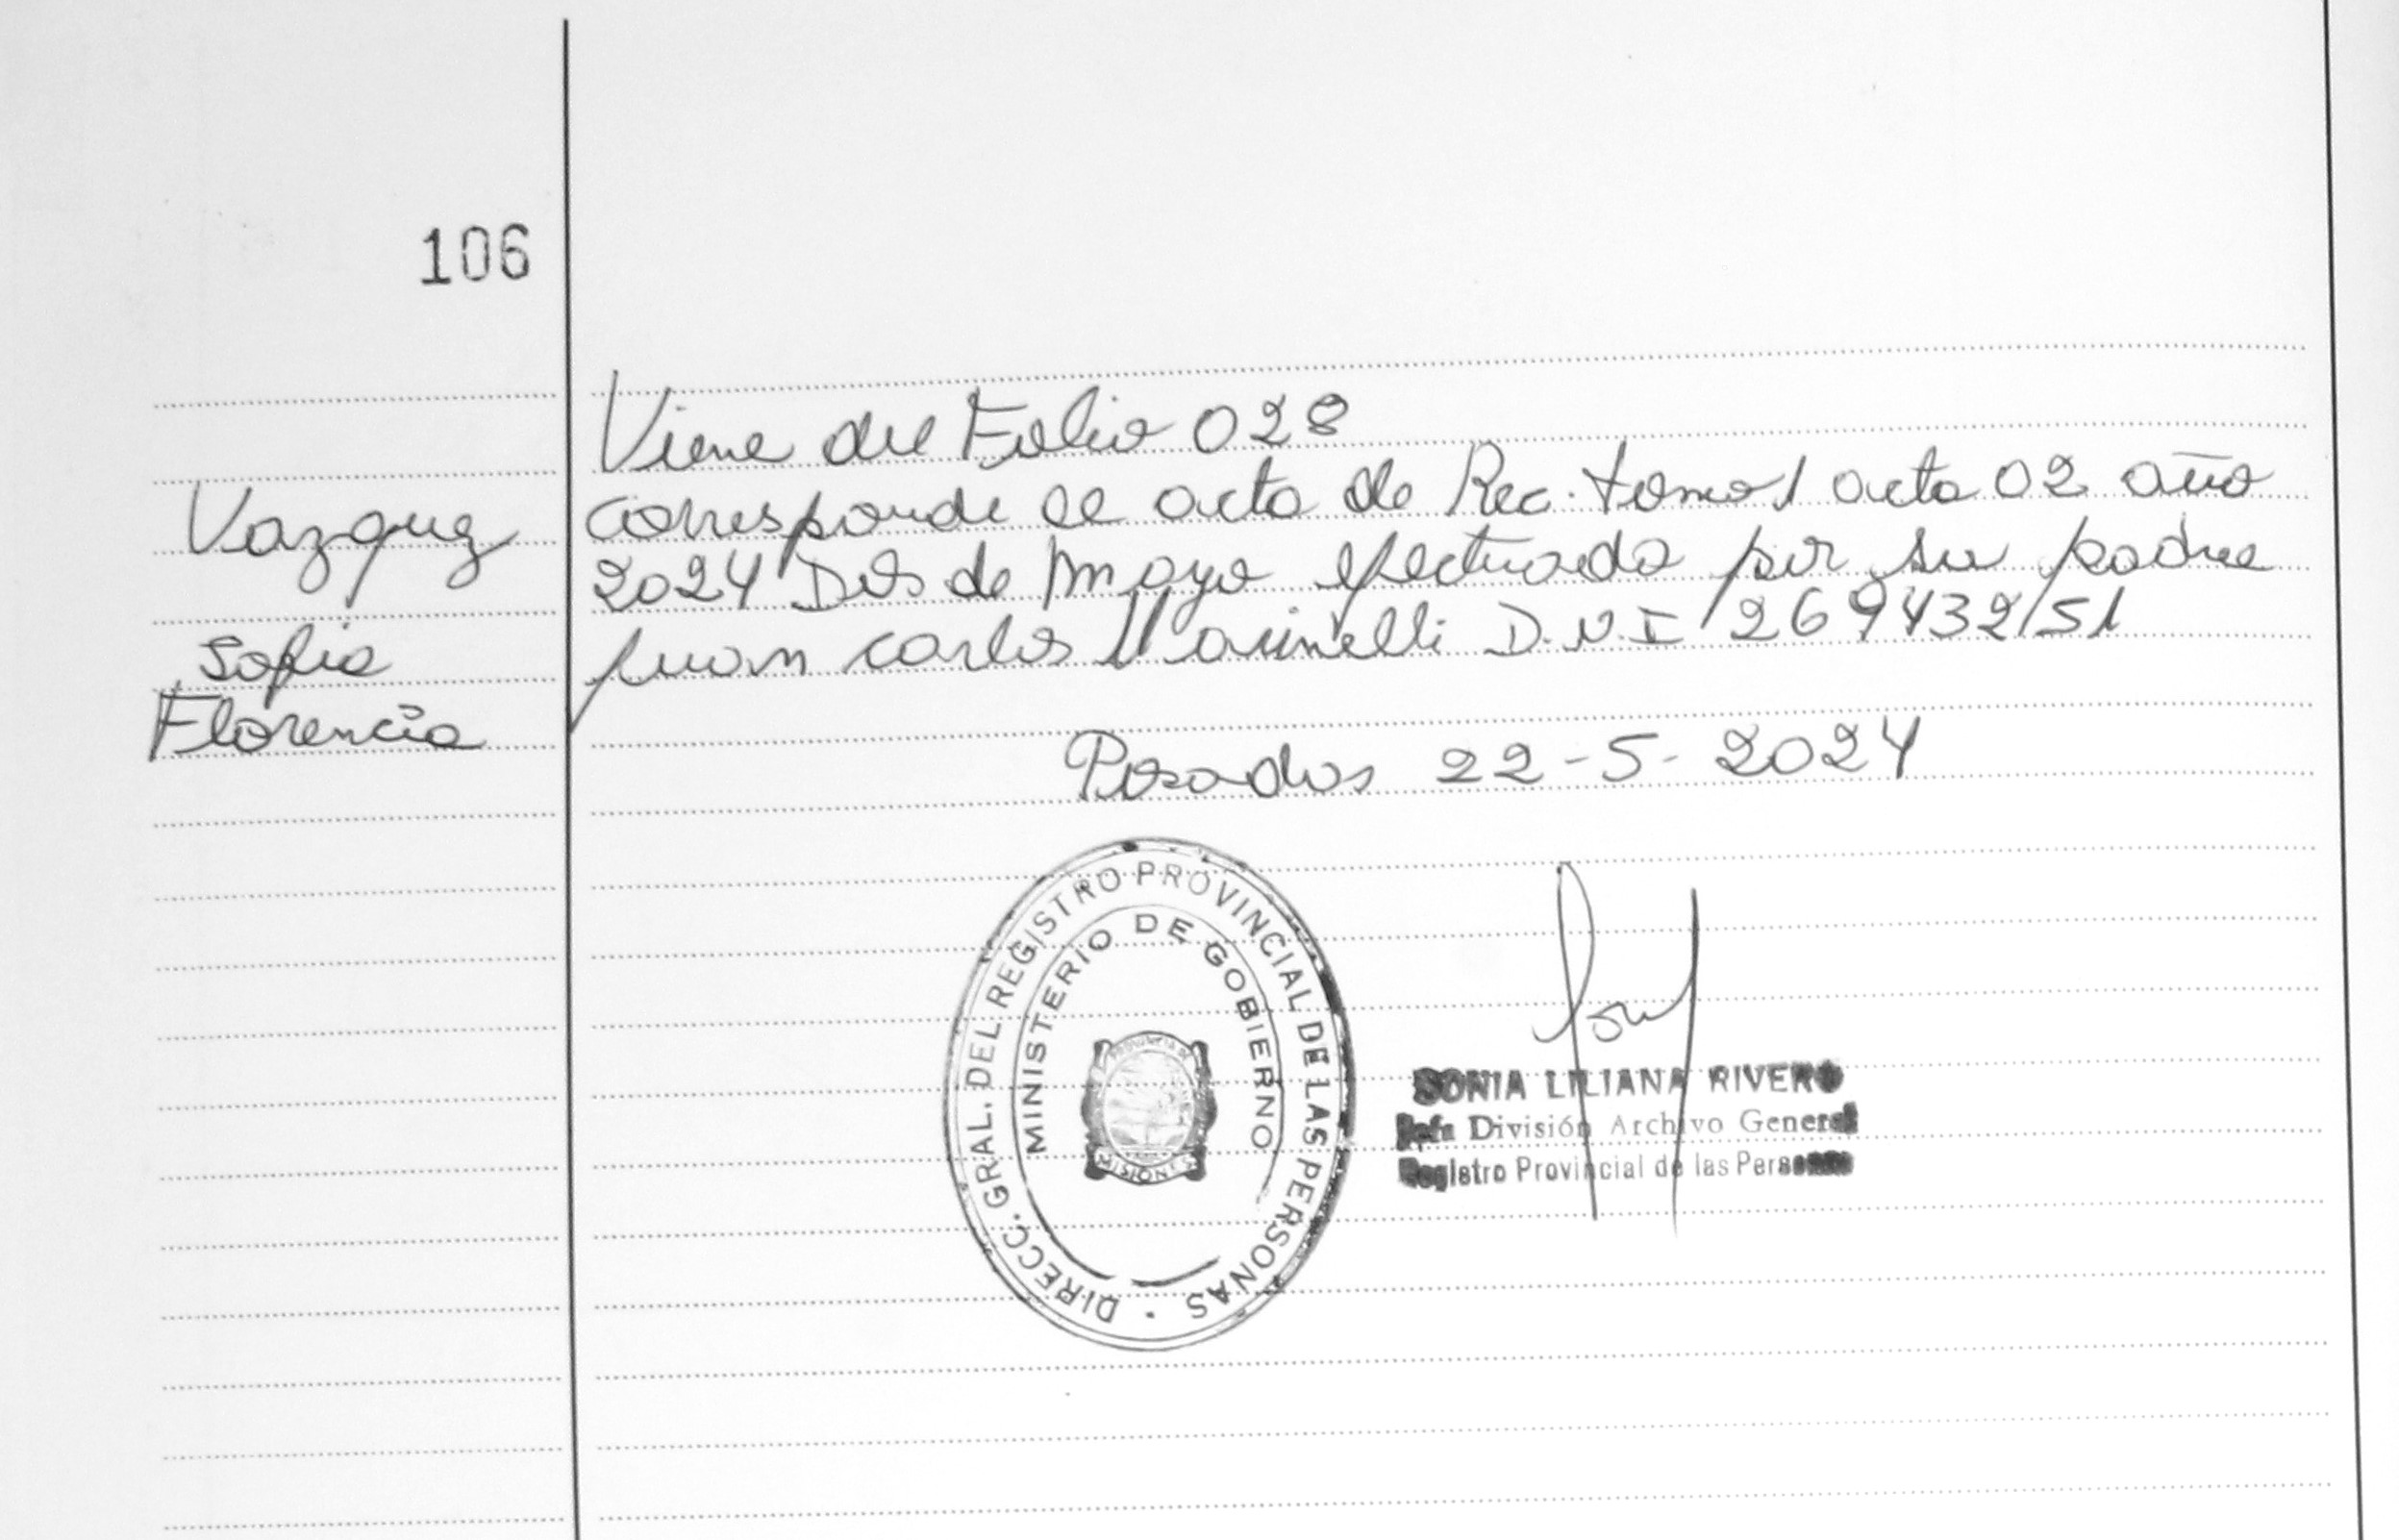 106
Viene del Folio 028
Vazquez
corresponde al acta de Rec. tomo 1 acta 02 año
2024 Dos de Mayo efectuada por su padre
Sofia
juan carlos Marinelli D.N.I 269432/51
Florencia
Posadas 22-5-2024
DIRECC. GRAL. DEL REGISTRO PROVINCIAL DE LAS PERSONAS
MINISTERIO DE GOBIERNO
PROVINCIA DE
MISIONES
SONIA LILIANA RIVERO
Jefa División Archivo General
Registro Provincial de las Personas